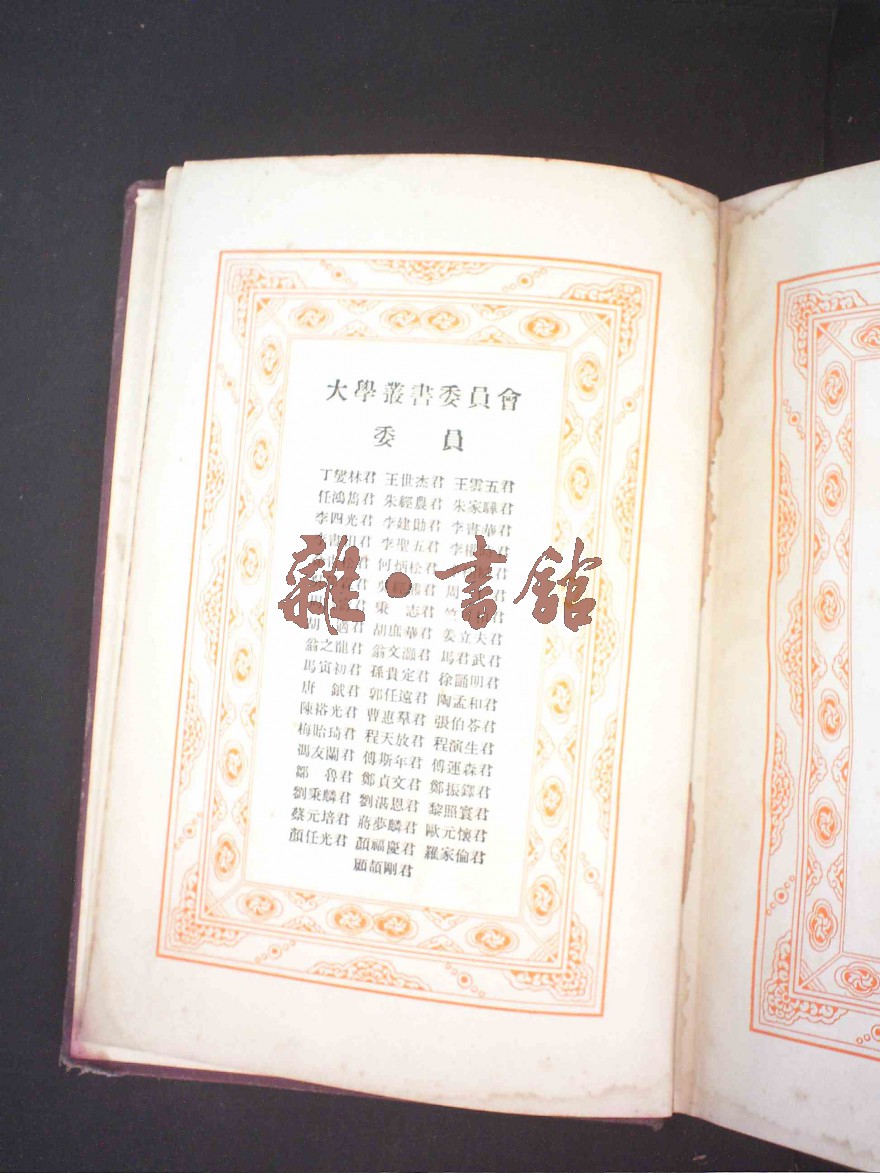 大學叢書委員會
委 員
丁燮林君 王世杰君 王雲五君
任鴻雋君 朱經農君 朱家驊君
李四光君 李建勛君 李書華君
李聖五君
何炳松君
周
秉 志君
胡 適君 胡庶華君 姜立夫君
翁之龍君 翁文灝君 馬君武君
馬寅初君 孫貴定君 徐誦明君
唐 鉞君 郭任遠君 陶孟和君
陳裕光君 曹惠羣君 張伯苓君
梅貽琦君 程天放君 程演生君
馮友蘭君 傅斯年君 傅運森君
鄒 魯君 鄭貞文君 鄭振鐸君
劉秉麟君 劉湛恩君 黎照寰君
蔡元培君 蔣夢麟君 歐元懷君
顏任光君 顏福慶君 羅家倫君
顧頡剛君
雜·書館